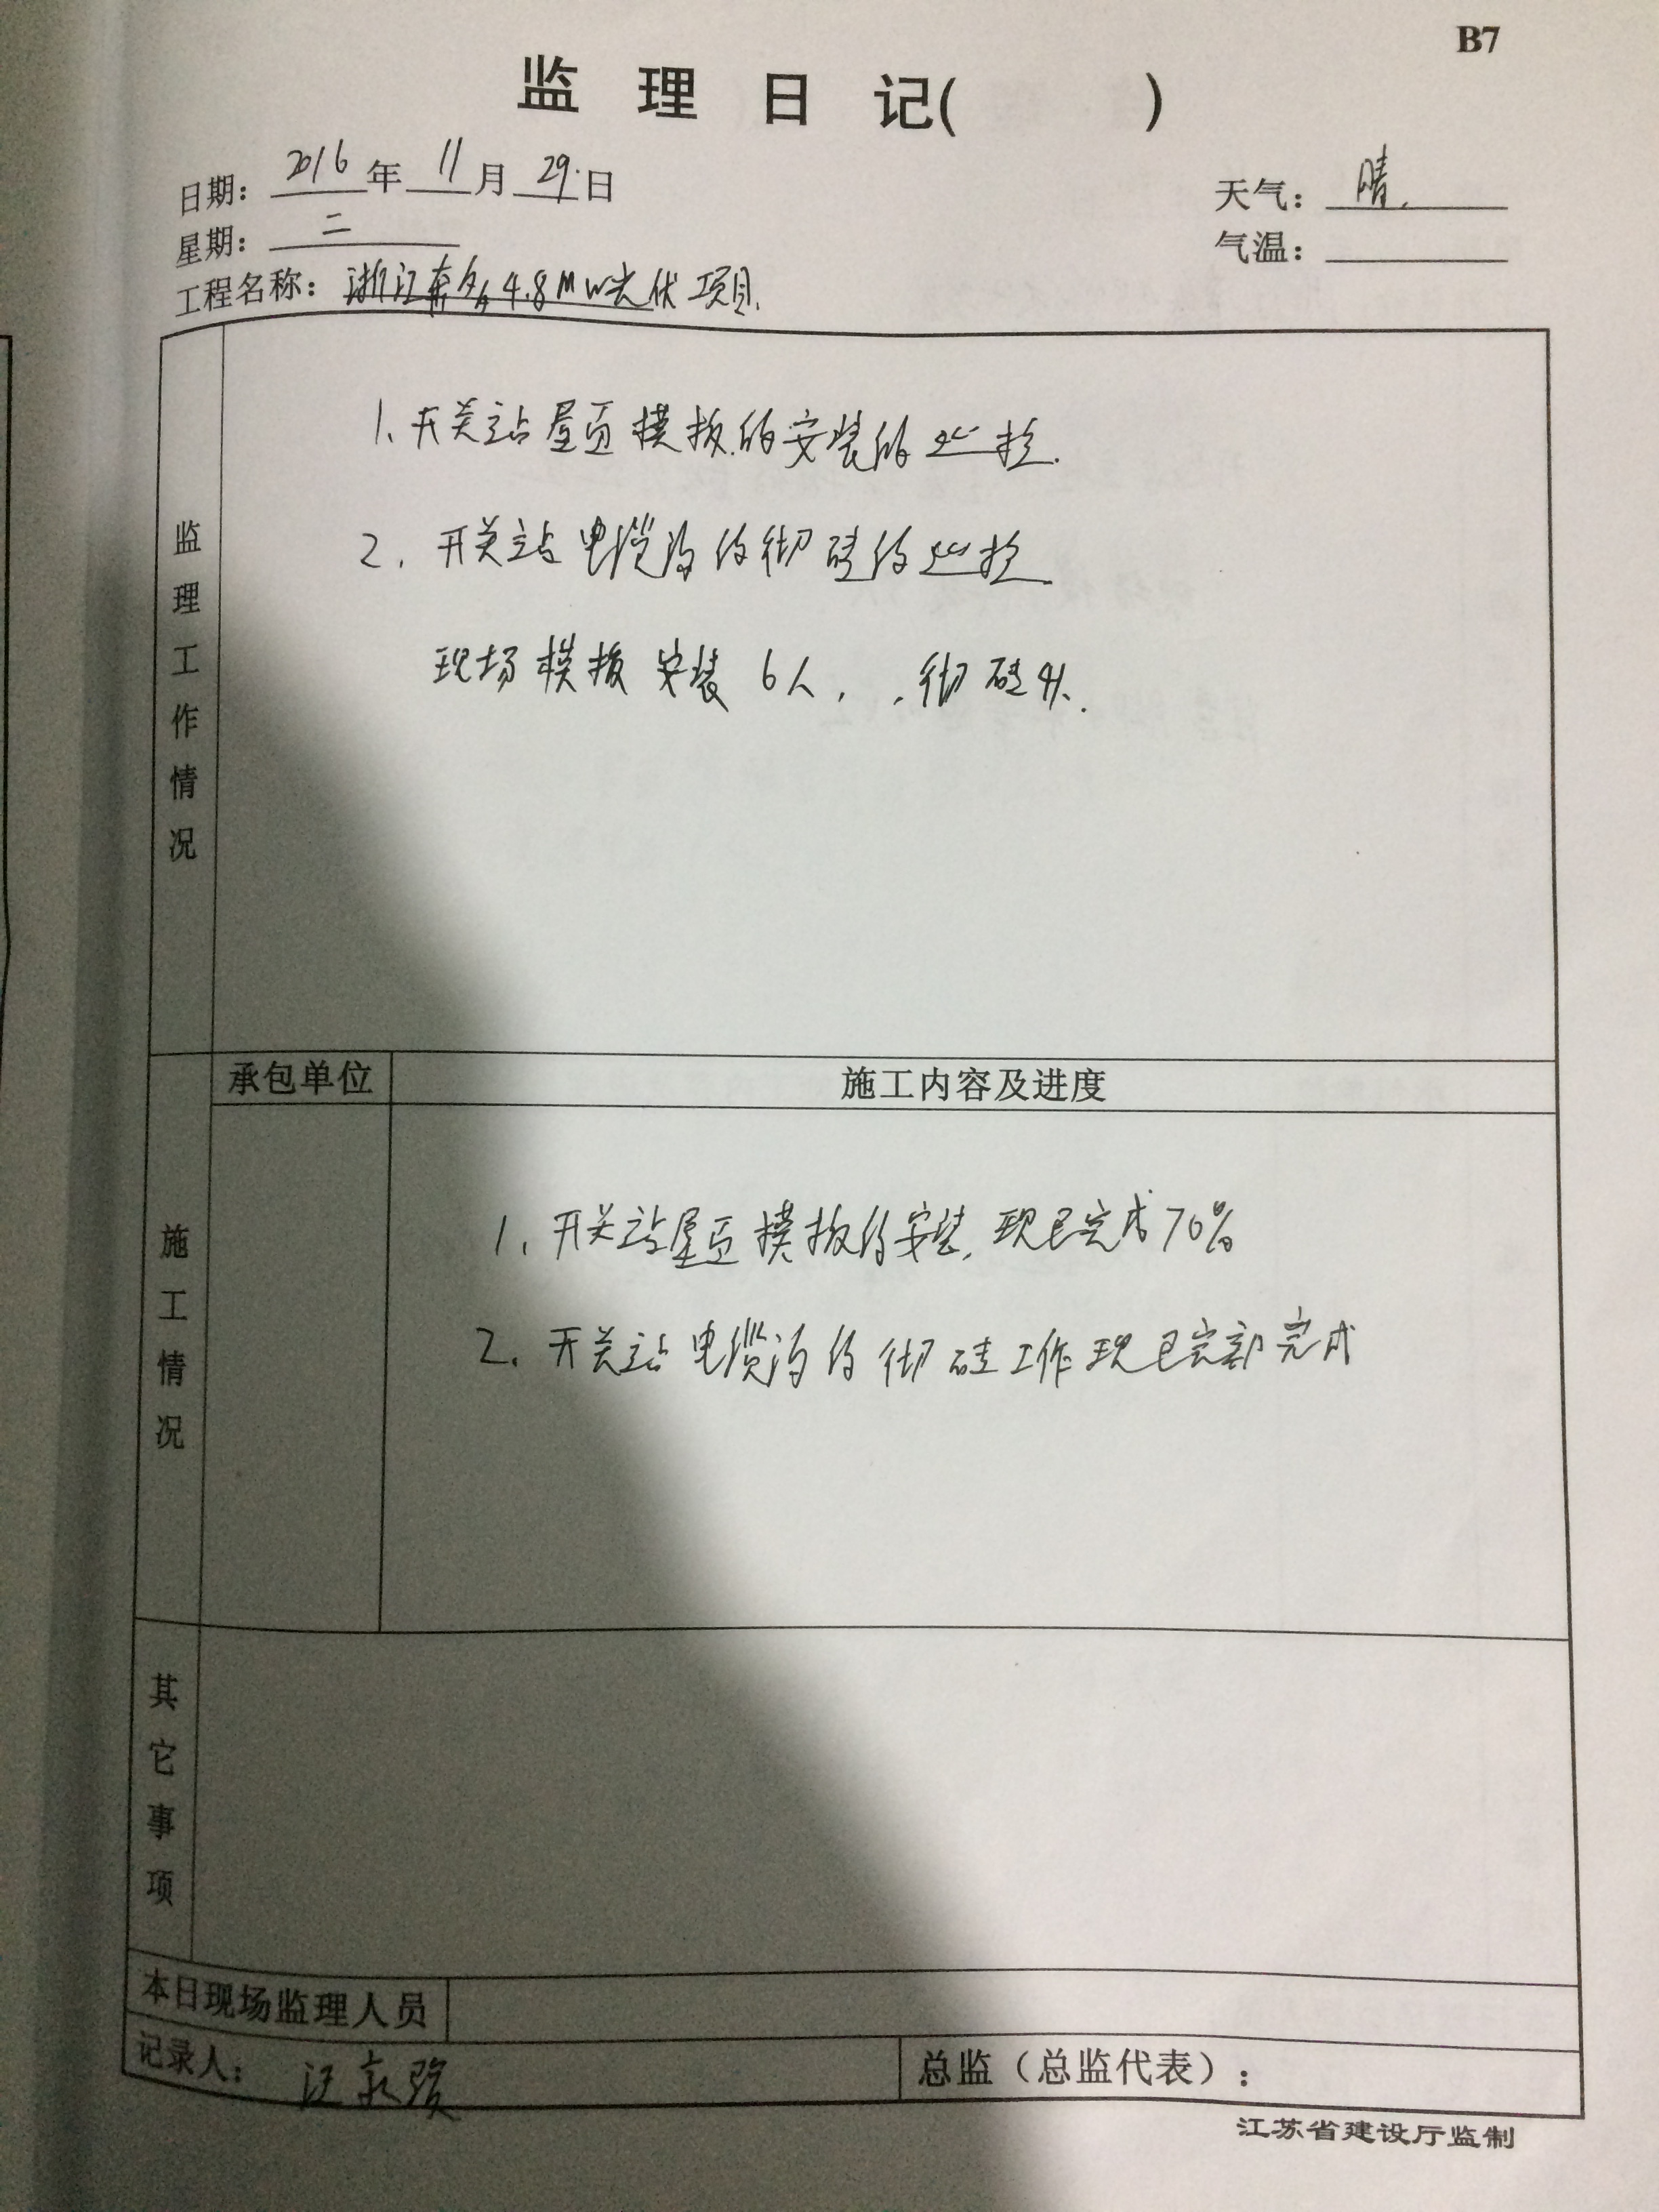 B7
监理日记( )
日期：2016年11月29日
天气：晴
星期：二
气温：
工程名称：浙江泰 4.8MW光伏项目
监理工作情况
1、开关站屋面模板的安装的巡检.
2、开关站电缆沟的砌砖的巡检.
现场模板安装6人，砌砖4人.
承包单位
施工内容及进度
施工情况
1、开关站屋面模板的安装,现已完成70%
2、开关站电缆沟的砌砖工作现已全部完成
其它事项
本日现场监理人员
记录人：汪
总监（总监代表）：
江苏省建设厅监制